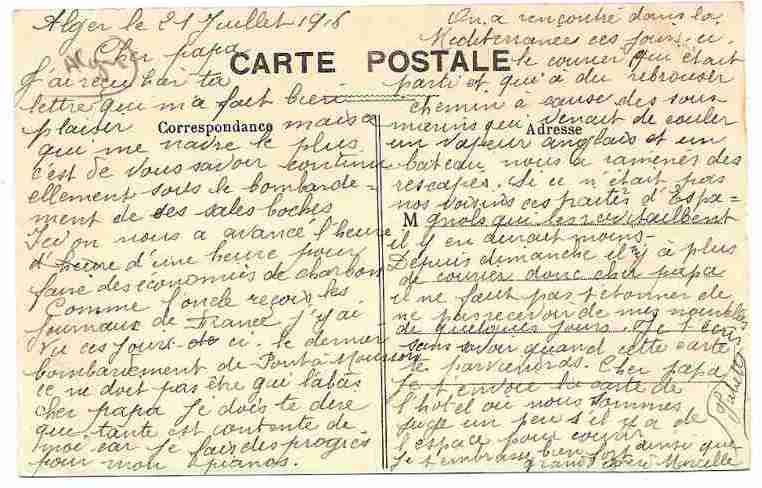 Alger le 21 Juillet 1916
Cher papa
J'ai reçu par ta
lettre qui m'a fait bien
plaisir mais ce
qui me navre le plus
c'est de vous savoir continu
ellement sous le bombarde=
ment de ces sales boches
Ici on nous a avancé l'heure
d'heure d'une heure pour
faire des économies de charbon
Comme l'oncle reçoit les
journaux de France j'y ai
vu ces jours-ci le dernier
bombardement de Pont-à-Mousson
ce ne doit pas être gai là bas
cher papa Je dois te dire
que tante est contente de
moi car je fais des progrès
pour mon piano.
CARTE POSTALE
Correspondance
Adresse
M
On a rencontré dans la
Méditerranées ces jours-ci
le courrier qui était
parti et qu'à du rebrousser
chemin à cause des sous-
marins qui venait de couler
un vapeur anglais et un
bateau nous a ramener des
rescapés. Si ce n'était pas
nos voisins ces traîtres d'Espa=
gnols qui les ravitaillent
il y en aurait moins-
Depuis dimanche il n'y à plus
de courrier donc cher papa
il ne faut pas t'étonner de
ne pas recevoir de mes nouvelles
de quelques jours. Je t'écris
sans savoir quand cette carte
te parviendras. Cher papa
Je t'envoie la carte de
l'hôtel où nous sommes
juge un peu s'il y a de
l'espace pour courir
Je t'embrasse bien fort ainsi que
grand Marcelle